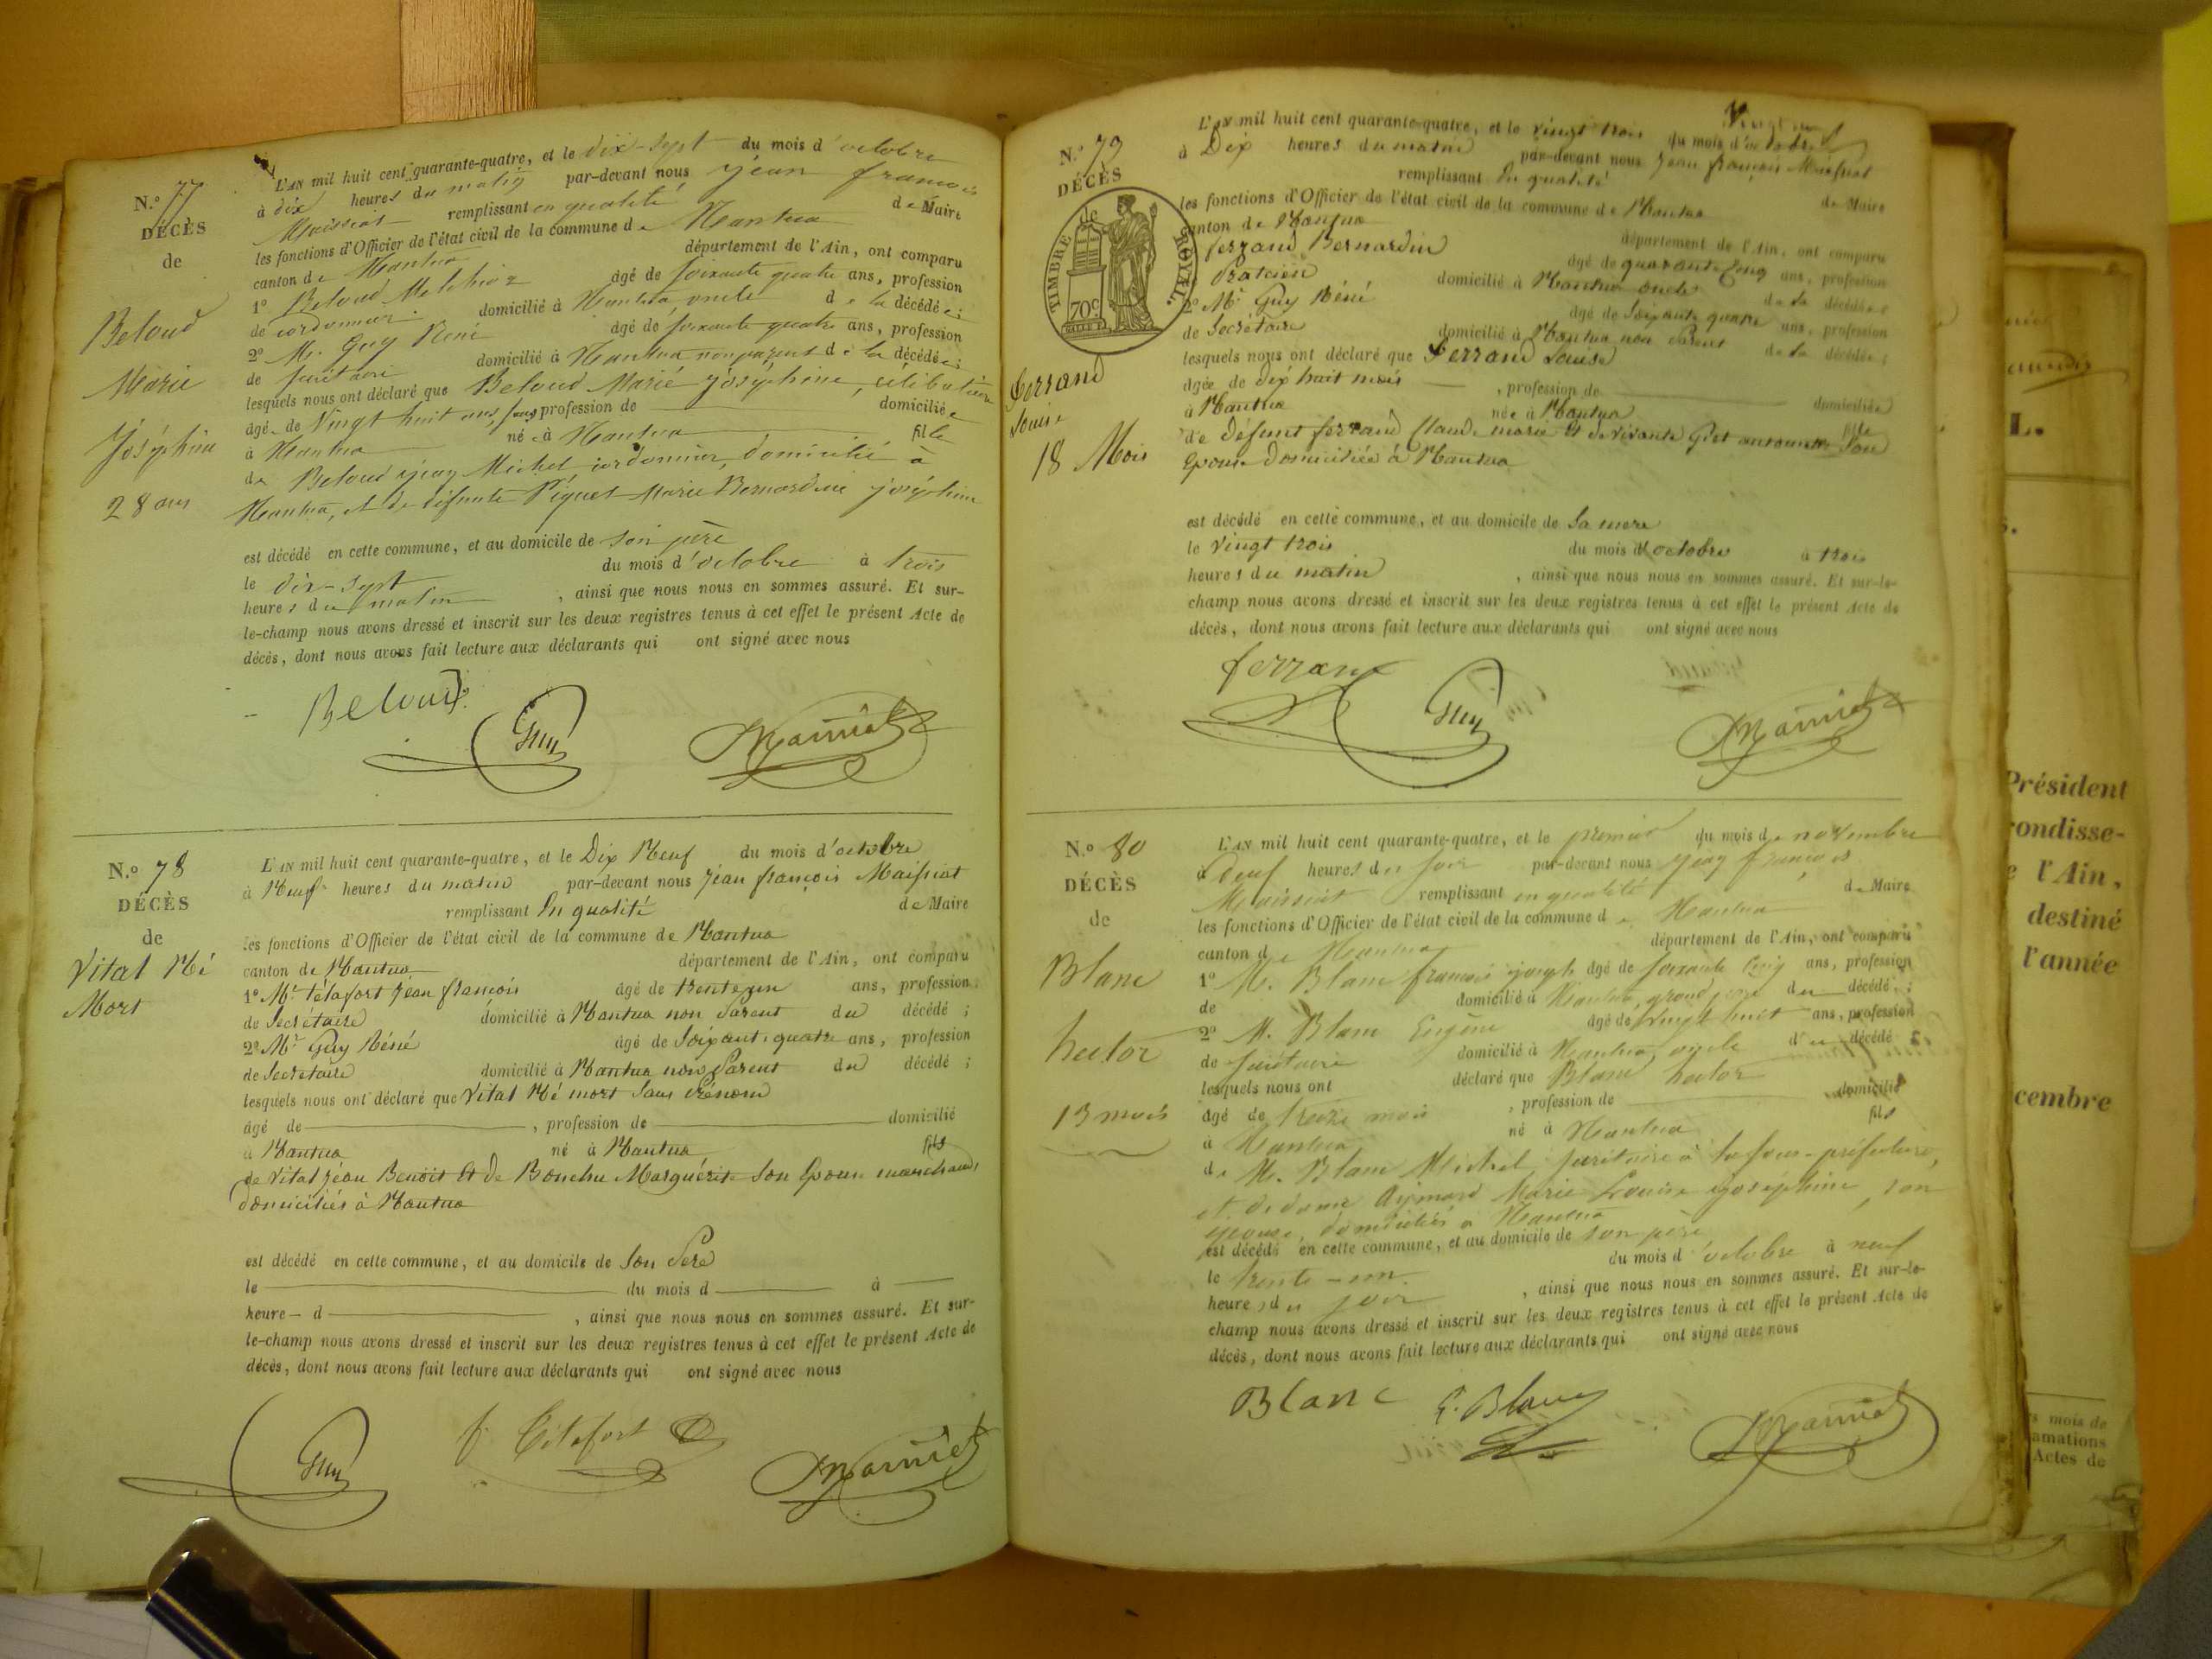 N.º 77
DÉCÈS
de
Beloud
Marie
Joséphine
28 ans
L'AN mil huit cent quarante-quatre, et le dix-sept du mois d'octobre
à dix heures du matin par-devant nous jéan francois
Maissiat remplissant en qualité de Maire
les fonctions d'Officier de l'état civil de la commune de Nantua
canton de Nantua département de l'Ain, ont comparu
1º Beloud Melchior âgé de soixante quatre ans, profession
de cordonnier domicilié à Nantua, oncle de la décédée;
2º Mr. Guy René âgé de soixante quatre ans, profession
de secrétaire domicilié à Nantua non parent de la décédée;
lesquels nous ont déclaré que Beloud Marie joséphine, célibataire
âgée de Vingt huit ans, sans profession de domiciliée
à Nantua née à Nantua fille
de Beloud jean Michel, cordonnier, domicilié à
Nantua, et de défunte Piquet Marie Bernardine joséphine
est décédé en cette commune, et au domicile de son père
le dix-sept du mois d'octobre à trois
heures du matin , ainsi que nous nous en sommes assuré. Et sur-
le-champ nous avons dressé et inscrit sur les deux registres tenus à cet effet le présent Acte de
décès, dont nous avons fait lecture aux déclarants qui ont signé avec nous
Beloud
Guy
Maissiat
N.º 78
DÉCÈS
de
Vital Né
Mort
L'AN mil huit cent quarante-quatre, et le Dix Neuf du mois d'octobre
à Neuf heures du matin par-devant nous jéan françois Maissiat
remplissant En qualité de Maire
les fonctions d'Officier de l'état civil de la commune de Nantua
canton de Nantua département de l'Ain, ont comparu
1º Mr. télafort jéan francois âgé de trente un ans, profession
de Secrétaire domicilié à Nantua non Parent du décédé;
2º Mr. Guy Réné âgé de Soixante quatre ans, profession
de Secretaire domicilié à Nantua non Parent du décédé;
lesquels nous ont déclaré que Vital Né mort Sans Prénom
âgé de , profession de domicilié
à Nantua né à Nantua fils
de Vital jéan Benoit Et de Bonchu Marguérite Son Epouse marchands
domiciliés à Nantua
est décédé en cette commune, et au domicile de Son Pere
le du mois d à
heure d , ainsi que nous nous en sommes assuré. Et sur-
le-champ nous avons dressé et inscrit sur les deux registres tenus à cet effet le présent Acte de
décès, dont nous avons fait lecture aux déclarants qui ont signé avec nous
Guy
Maissiat
N.º 79
DÉCÈS
TIMBRE ROYAL.
70c
ferrand
Louise
18 Mois
L'AN mil huit cent quarante-quatre, et le vingt trois du mois d'octobre
à Dix heures du matin par-devant nous Jéan françois Maissiat
remplissant En qualité de Maire
les fonctions d'Officier de l'état civil de la commune de Nantua
canton de Nantua département de l'Ain, ont comparu
ferrand Bernardin âgé de quarante cinq ans, profession
Praticien domicilié à Nantua oncle de la décédée;
2º Mr. Guy Réné âgé de Soixante quatre ans, profession
de Secretaire domicilié à Nantua non Parent de la décédée;
lesquels nous ont déclaré que ferrand Louise
âgée de Dix huit mois , profession de domiciliée
à Nantua née à Nantua fille
de Défunt ferrand Claude marie Et de vivante Son
Epouse Domiciliée à Nantua
est décédé en cette commune, et au domicile de Sa mere
le Vingt trois du mois d'octobre à trois
heures du matin , ainsi que nous nous en sommes assuré. Et sur-le-
champ nous avons dressé et inscrit sur les deux registres tenus à cet effet le présent Acte de
décès, dont nous avons fait lecture aux déclarants qui ont signé avec nous
ferrand
Guy
Maissiat
N.º 80
DÉCÈS
de
Blanc
hector
13 mois
L'AN mil huit cent quarante-quatre, et le premier du mois de novembre
à Deux heures du soir par-devant nous jean françois
Maissiat remplissant en qualité de Maire
les fonctions d'Officier de l'état civil de la commune de Nantua
canton de Nantua département de l'Ain, ont comparu
1º M. Blanc francois joseph âgé de soixante cinq ans, profession
de domicilié à Nantua, grand père du décédé;
2º M. Blanc Eugène âgé de vingt huit ans, profession
de secrétaire domicilié à Nantua, oncle du décédé
lesquels nous ont déclaré que Blanc hector
âgé de treize mois , profession de domicilié
à Nantua né à Nantua fils
de M. Blanc Michel, secrétaire à la sous-préfecture,
et de dame Aymard Marie Louise joséphine, son
épouse, domiciliés à Nantua
est décédé en cette commune, et au domicile de son père
le trente-un du mois d'octobre à neuf
heures du soir , ainsi que nous nous en sommes assuré. Et sur-le-
champ nous avons dressé et inscrit sur les deux registres tenus à cet effet le présent Acte de
décès, dont nous avons fait lecture aux déclarants qui ont signé avec nous
Blanc
E. Blanc
Maissiat
L.
Président
ondisse-
l'Ain,
destiné
l'année
cembre
mois de
amations
Actes de